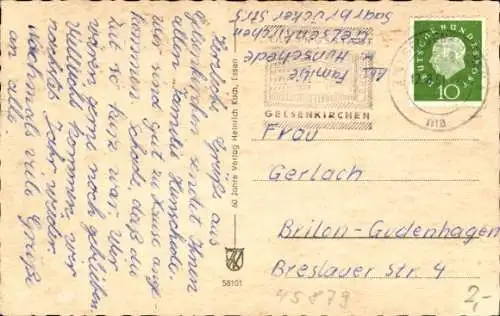 Herzliche Grüße aus
Gelsenkirchen sendet Ihnen
allen Familie Hunschede.
wir sind gut zu Hause ange-
kommen. Schade, daß die
Zeit so kurz war. Wir
wären gerne noch geblieben
Vielleicht kommen wir
nächstes Jahr wieder
Nochmals viele Grüße
an alle
Abs. Familie
Hunschede
Gelsenkirchen
Saarbrücker Str 5
60 Jahre Verlag Heinrich Koch, Essen
58101
GELSENKIRCHEN
DEUTSCHE BUNDESPOST
10
Frau
Gerlach
Brilon-Gudenhagen
Breslauer Str. 4
45879
2,-